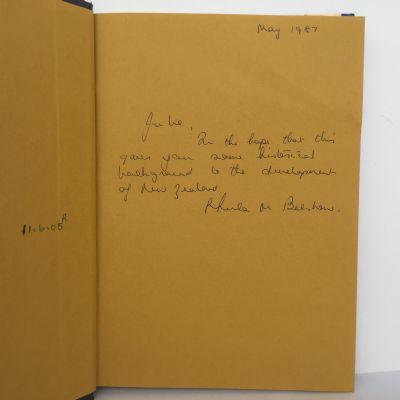 May 1987
Julie,
In the hope that this
gives you some historical
background to the development
of New Zealand.
M Belshaw.
11.6.05 R